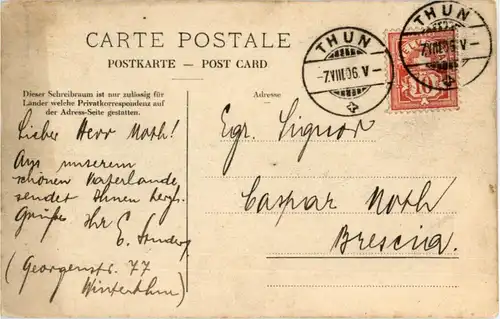 CARTE POSTALE
POSTKARTE — POST CARD
Dieser Schreibraum ist nur zulässig für
Länder welche Privatkorrespondenz auf
der Adress-Seite gestatten.
Adresse
THUN
-7.VIII.06.V-
THUN
-7.VIII.06.V-
HELVETIA
10
Lieber Herr Noth!
Aus unserem
schönen Vaterlande
sendet Ihnen herzl.
Grüße Ihr E.
(Georgenstr. 77
Winterthur)
Egr. Signor
Caspar Noth
Brescia.